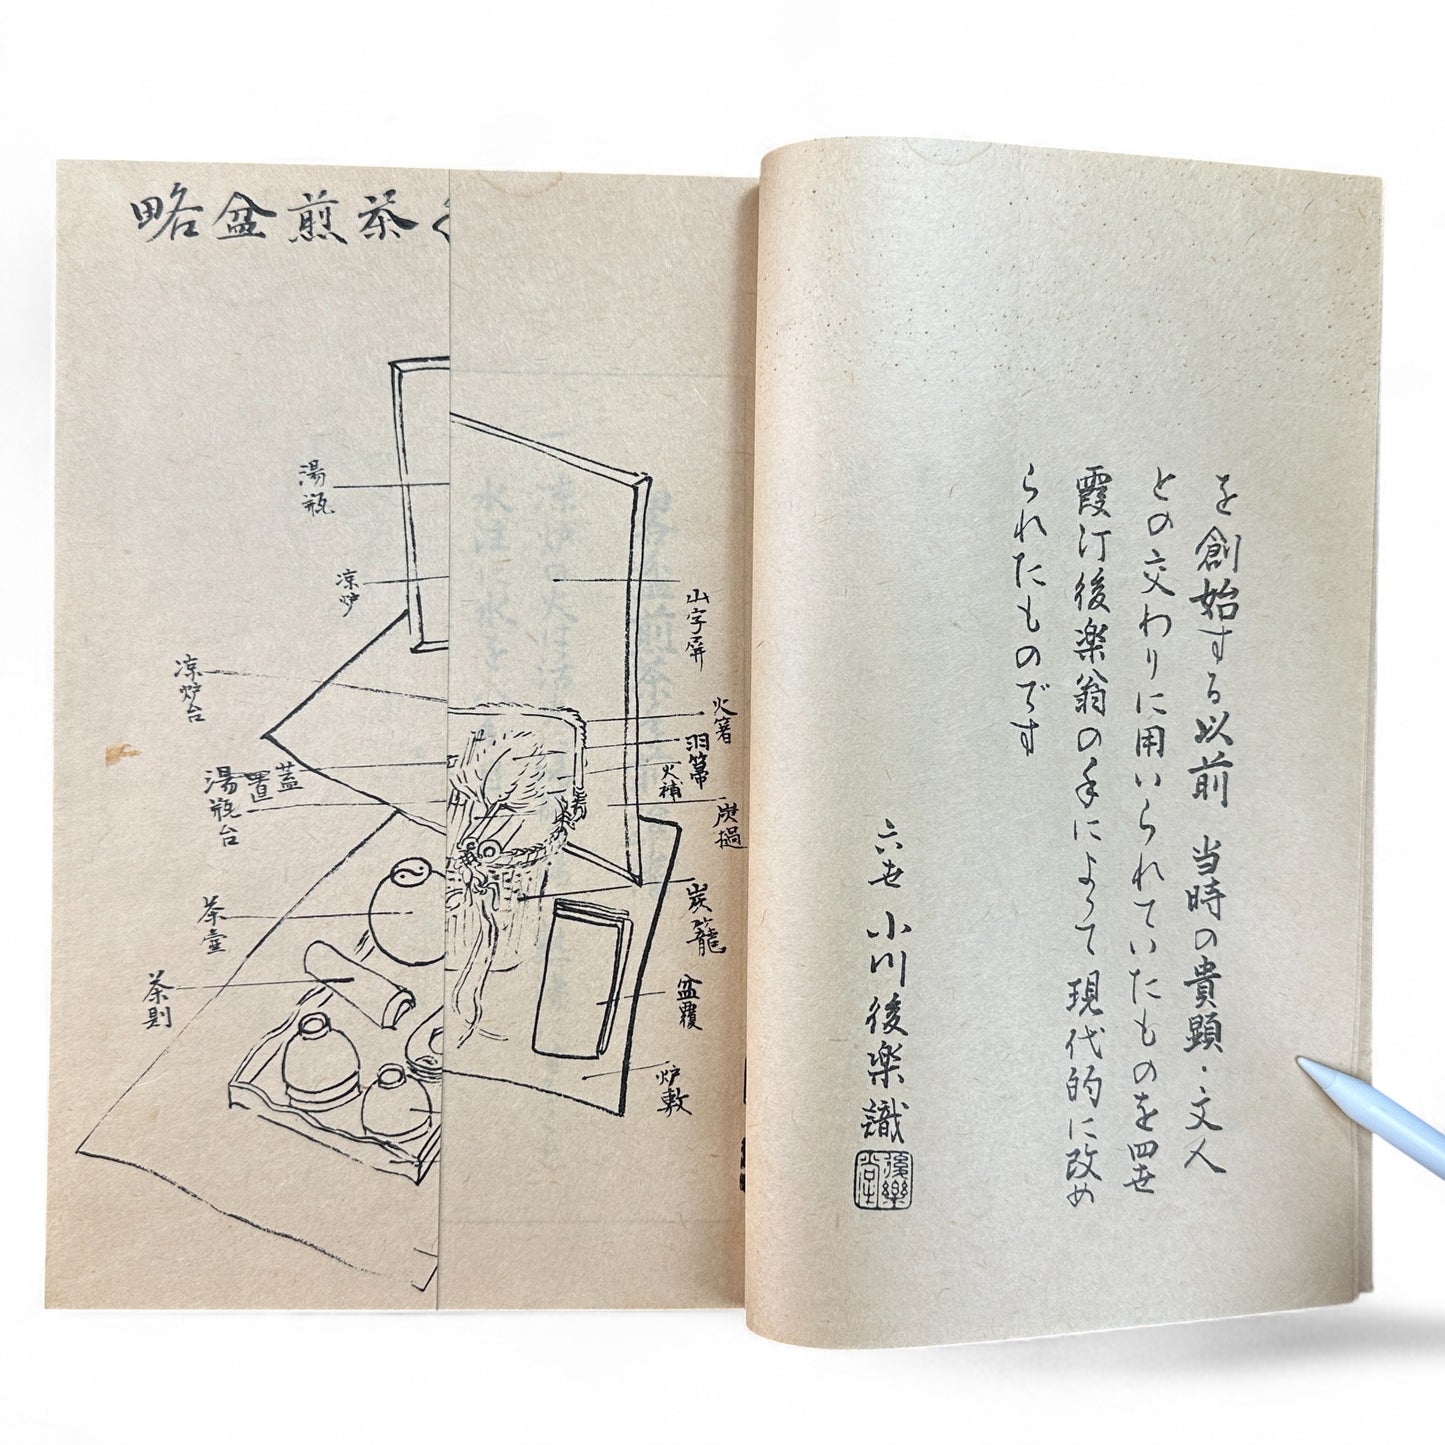 を創始する以前 当時の貴顕・文人
との交わりに用いられていたものを四世
霞汀後楽翁の手によって現代的に改め
られたものです
六世 小川後楽識
後樂堂
略盆煎茶
山字屏
火箸
羽箒
火補
炭撾
炭籠
盆覆
炉敷
湯瓶
涼炉
涼炉台
蓋置
湯瓶台
茶壷
茶則